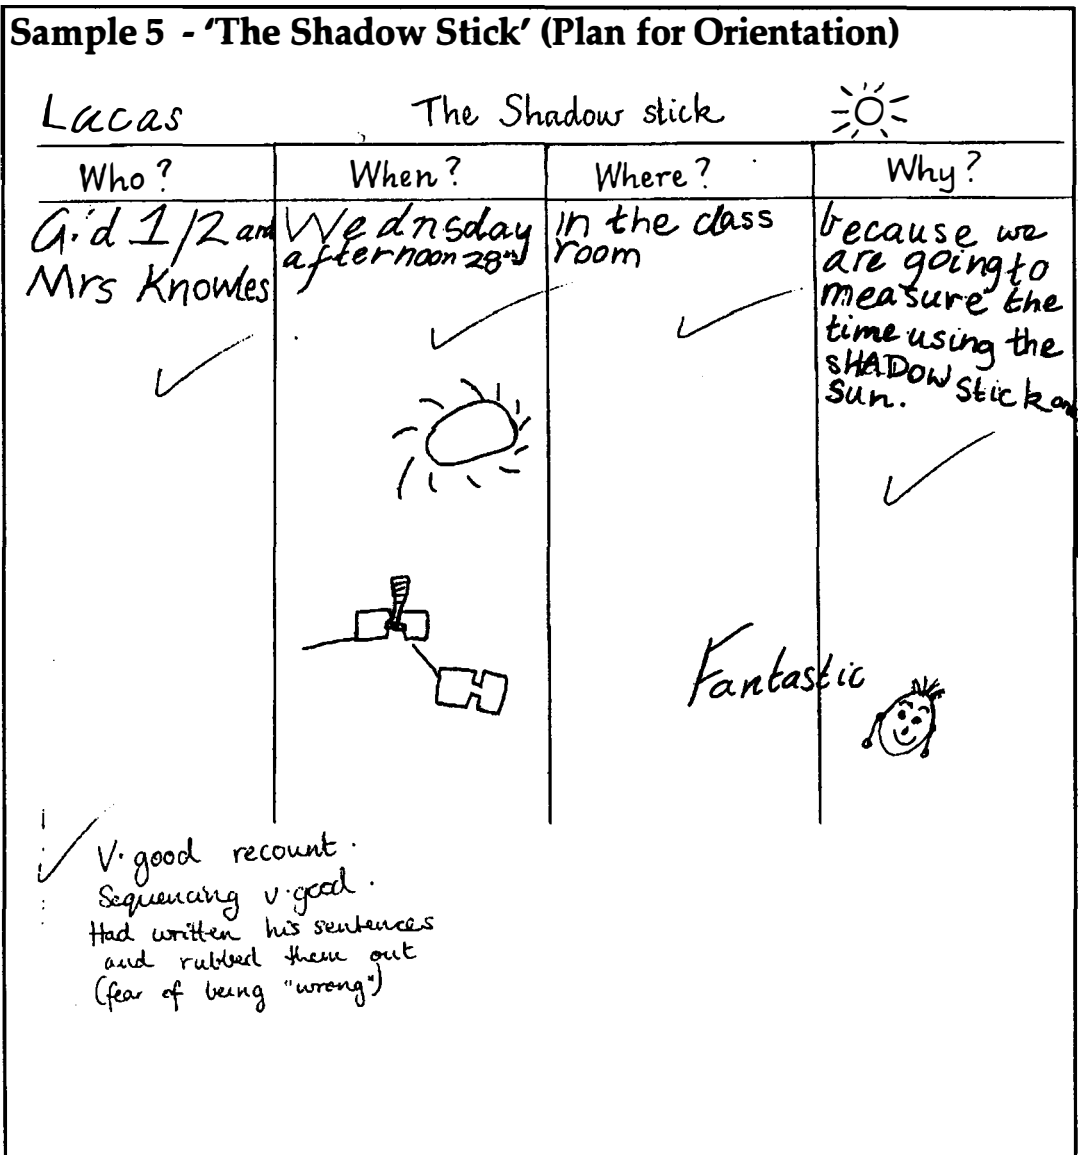 Sample 5 - 'The Shadow Stick' (Plan for Orientation)
Lucas
The Shadow stick
Who?
When?
Where?
Why?
G.d 1/2 and
Mrs Knowles
Wednsday
afternoon 28th
in the class
room
because we
are going to
measure the
time using the
SHADOW Stick and
Sun.
Fantastic
V. good recount.
Sequencing v. good.
Had written his sentences
and rubbed them out
(fear of being "wrong")